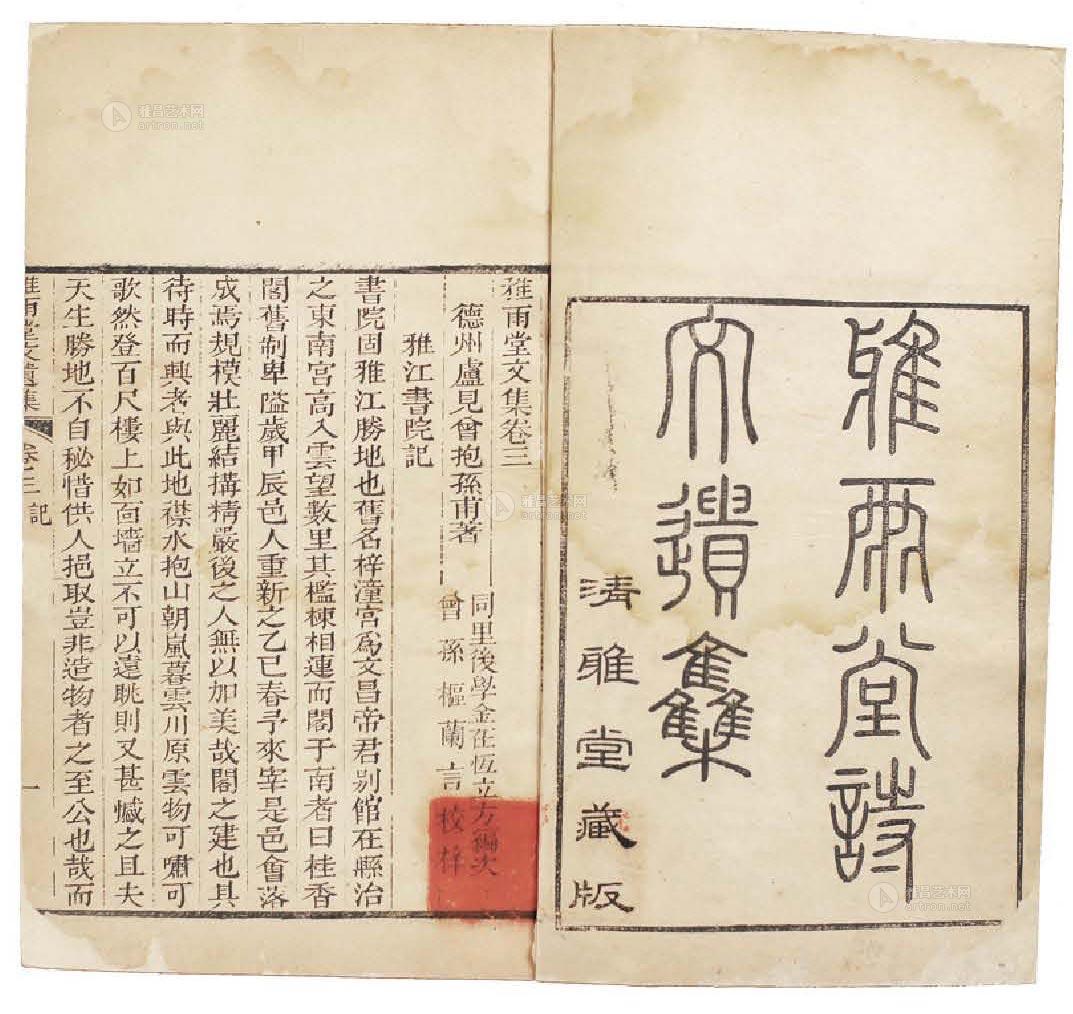 雅雨堂詩
文遺集
清雅堂藏版
雅雨堂文集卷三
德州盧見曾抱孫甫著
同里後學金在恆立方編次
曾孫樞蘭言校梓
雅江書院記
書院固雅江勝地也舊名梓潼宮爲文昌帝君别館在縣治
之東南宮高入雲望數里其檻棟相連而閣于南者曰桂香
閣舊制卑隘歲甲辰邑人重新之乙巳春予來宰是邑會落
成焉規模壯麗結搆精嚴後之人無以加美哉閣之建也其
待時而興者與此地襟水抱山朝嵐暮雲川原雲物可嘯可
歌然登百尺樓上如面墻立不可以遠眺則又甚憾之且夫
天生勝地不自秘惜供人挹取豈非造物者之至公也哉而
雅雨堂文遺集
卷三 記
一
雅昌艺术网
artron.net
雅昌艺术网
artron.net
雅昌艺术网
artron.net